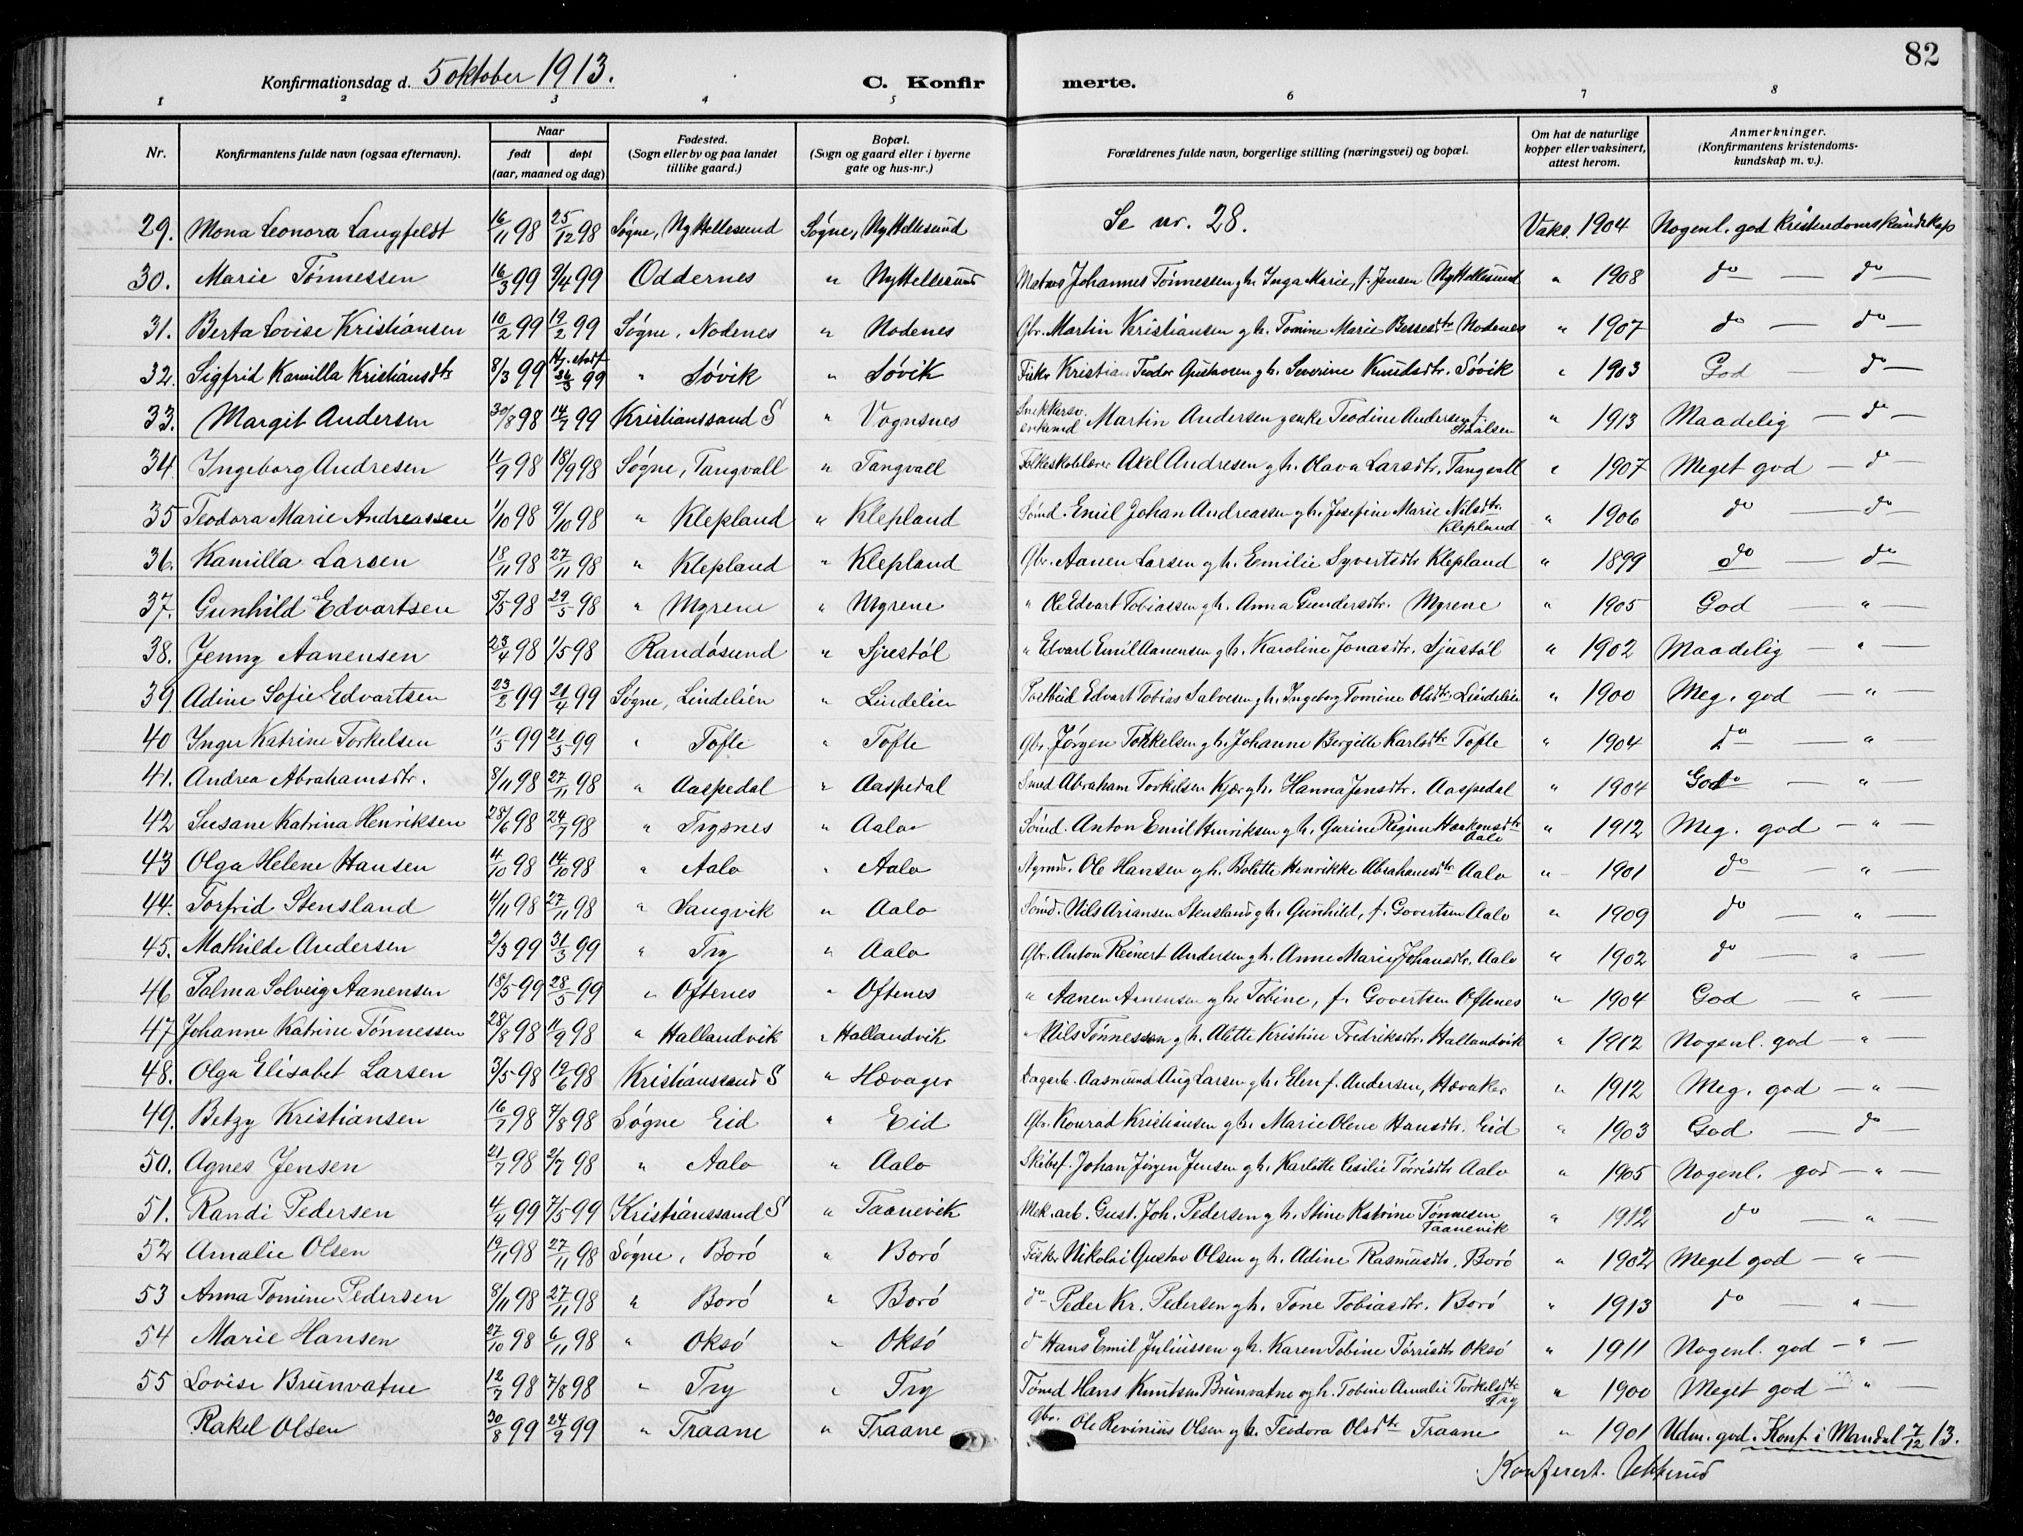 82
Konfirmationsdag d. 5 oktober 1913. C. Konfirmerte.
1 2 3 4 5 6 7 8
Nr. Konfirmantens fulde navn (ogsaa efternavn). Naar født døpt (aar, maaned og dag) Fødested. (Sogn eller by og paa landet tillike gaard.) Bopæl. (Sogn og gaard eller i byerne gate og hus-nr.) Forældrenes fulde navn, borgerlige stilling (næringsvei) og bopæl. Om hat de naturlige kopper eller vaksinert, attest herom. Anmerkninger. (Konfirmantens kristendomskundskap m. v.).
29. Mona Leonora Langfeldt 16/11 98 25/12 98 Søgne, Ny Hellesund Søgne, Ny Hellesund Se nr. 28. Vaks. 1904 Nogenl. god kristendomskundskap
30. Marie Tønnessen 16/3 99 9/4 99 Oddernes " Ny Hellesund Matros Johannes Tønnessen g h. Inga Marie, f. Jensen Ny Hellesund " 1908 do — do
31. Berta Lovise Kristiansen 10/2 99 19/2 99 Søgne, Nodenes " Nodenes Gbr. Martin Kristiansen g h. Tomine Marie Bessesdtr Nodenes " 1907 do — do
32. Sigfrid Kamilla Kristiansdtr 8/3 99 Hj. stadf. 26/3 99 " Søvik " Søvik Fisker Kristian Teodor Gustavsen g h. Severine Knudsdtr. Søvik " 1903 God — do
33. Margit Andersen 30/8 98 14/7 99 Kristianssand S " Vognsnes Snekkersv. enkemd Martin Andersen g enke Teodine Andersen f. " 1913 Maadelig — do
34. Ingeborg Andresen 11/9 98 18/9 98 Søgne, Tangvall " Tangvall Folkeskolelærer Axel Andresen g h. Olava Larsdtr. Tangvall " 1907 Meget god — do
35 Teodora Marie Andreassen 1/10 98 9/10 98 " Klepland " Klepland Sømd. Emil Johan Andreassen g h. Josefine Marie Nilsdtr. Klepland " 1906 do — do
36. Kamilla Larsen 18/11 98 27/11 98 " Klepland " Klepland Gbr. Aanen Larsen g h. Emilie Syvertsdtr Klepland " 1899 do — do
37. Gunhild Edvartsen 5/5 98 29/5 98 " Myrene " Myrene " Ole Edvart Tobiassen g h. Anna Gundersdtr. Myrene " 1905 God — "
38. Jenny Aanensen 23/4 98 1/5 98 Randøsund " Sjustøl " Edvart Emil Aanensen g h. Karoline Jonasdtr. Sjustøl " 1902 Maadelig — "
39. Adine Sofie Edvartsen 23/2 99 21/4 99 Søgne, Lindelien " Lindelien Edvart Tobias Salvesen g h. Ingeborg Tomine Olsdtr Lindelien " 1900 Meg. god — "
40 Inger Katrine Torkelsen 11/5 99 21/5 99 " Tofte " Tofte Gbr. Jørgen Torkelsen g h. Johanne Bergitte Karlsdtr Tofte " 1904 do — "
41. Andrea Abrahamsdtr. 8/11 98 27/11 98 " Aaspedal " Aaspedal Smed Abraham Torkilsen Kjær g h. Hanna Jensdtr. Aaspedal " 1904 God — "
42 Susane Katrina Henriksen 28/6 98 24/7 98 " Trysnes " Aalo Sømd. Anton Emil Henriksen g h. Gurine Regine Haakonsdtr Aalo " 1912 Meg. god — "
43 Olga Helene Hansen 4/10 98 14/10 98 " Aalo " Aalo Styrmd. Ole Hansen g h. Bolette Henrikke Abrahamsdtr Aalo " 1901 do — "
44. Torfrid Stensland 4/11 98 27/11 98 " Langvik " Aalo Sømd. Nils Ariansen Stensland g h. Gunhild, f. Govertsen Aalo " 1909 do — "
45. Mathilde Andersen 2/3 99 31/3 99 " Try " Aalo Gbr. Anton Reinert Andersen g h. Anne Marie Johansdtr. Aalo " 1902 do — "
46 Palma Solveig Aanensen 18/5 99 28/5 99 " Oftenes " Oftenes " Aanen Aanensen g h. Tobine, f. Govertsen Oftenes " 1904 God — "
47 Johanne Katrine Tønnessen 28/8 98 11/9 98 " Hallandvik " Hallandvik " Nils Tønnessen g h. Alette Kristine Fredriksdtr. Hallandvik " 1912 Nogenl. god — "
48. Olga Elisabet Larsen 3/5 98 19/6 98 Kristianssand S " Hævager Dagarb. Aasmund Aug Larsen g h. Elen f. Andersen, Hævaker " 1912 Meg. god — "
49. Betzy Kristiansen 16/7 98 7/8 98 Søgne Eid " Eid Gbr. Konrad Kristiansen g h. Marie Olene Hansdtr. Eid " 1903 God — do
50. Agnes Jensen 21/7 98 2/7 98 " Aalo " Aalo Skibsf. Johan Jørgen Jensen g h. Karlotte Cesilie Tørrisdtr Aalo " 1905 Nogenl. god — "
51. Randi Pedersen 4/4 99 7/5 99 Kristianssand S " Taanevik Mek. arb. Gust. Joh. Pedersen g h. Stine Katrine Tønnesen Taanevik " 1912 do — "
52 Amalie Olsen 19/11 98 27/11 98 Søgne, Borø " Borø Fisker Nikolai Gustav Olsen g h. Adine Rasmusdtr. Borø " 1902 Meget god — "
53 Anna Tomine Pedersen 8/11 98 27/11 98 " Borø " Borø do Peder Kr. Pedersen g h. Tone Tobiasdtr. Borø " 1913 do — "
54 Marie Hansen 27/10 98 6/11 98 " Oksø " Oksø do Hans Emil Juliussen g h. Karen Tobine Tørrisdtr Oksø " 1911 Nogenl. god — "
55 Lovise Brunvatne 12/7 98 7/8 98 " Try " Try Tømd Hans Knutsen Brunvatne g h. Tobine Amalie Torkelsdtr Try " 1900 Meget god — "
Rakel Olsen 30/8 99 24/9 99 " Traane " Traane Gbr. Ole Revinius Olsen g h. Teodora Olsdtr Traane " 1901 Udm. god. Konf. i Mandal 7/12 13.
Konferert.